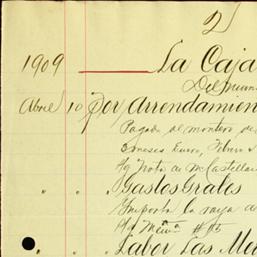 2
1909 La Caja
Del
Abril 10 Por Arrendamien
Pagado al montero de
3 meses Enero, Febrero
Sg Nota de M Castella
" " Gastos Grales
Importe la raya de
" " Labor Las Me